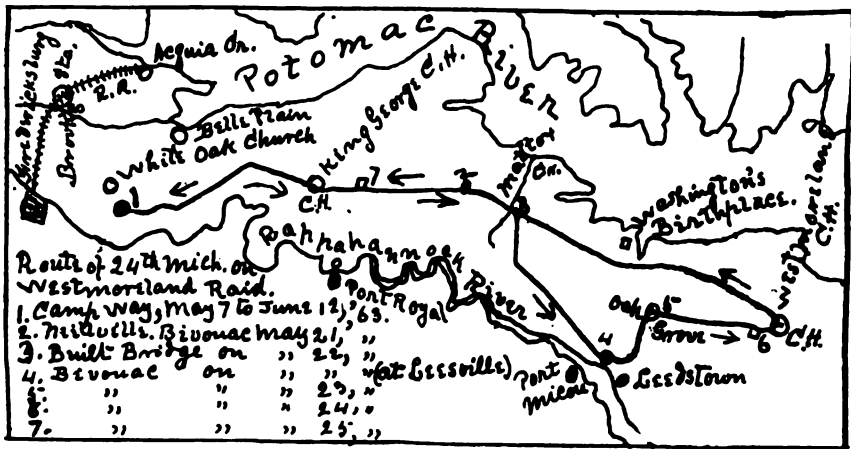 Potomac River
Acquia Cr.
R.R.
Fredricksburg
Brooks Sta.
Belle Plain
White Oak Church
King George C.H.
C.H.
1
7
2
3
Mattox
Cr.
Washington's
Birthplace.
Westmoreland
C.H.
C.H.
Rappahannock
River
Port Royal
Oak
Grove
5
6
4
Port
Micou
Leedstown
Route of 24th Mich. on
Westmoreland Raid.
1. Camp Way, May 7 to June 12, '63.
2. Millville. Bivouac May 21, "
3. Built Bridge on " 22, "
4. Bivouac on " " " (at Leesville)
5. " " " 23, "
6. " " " 24, "
7. " " " 25, "